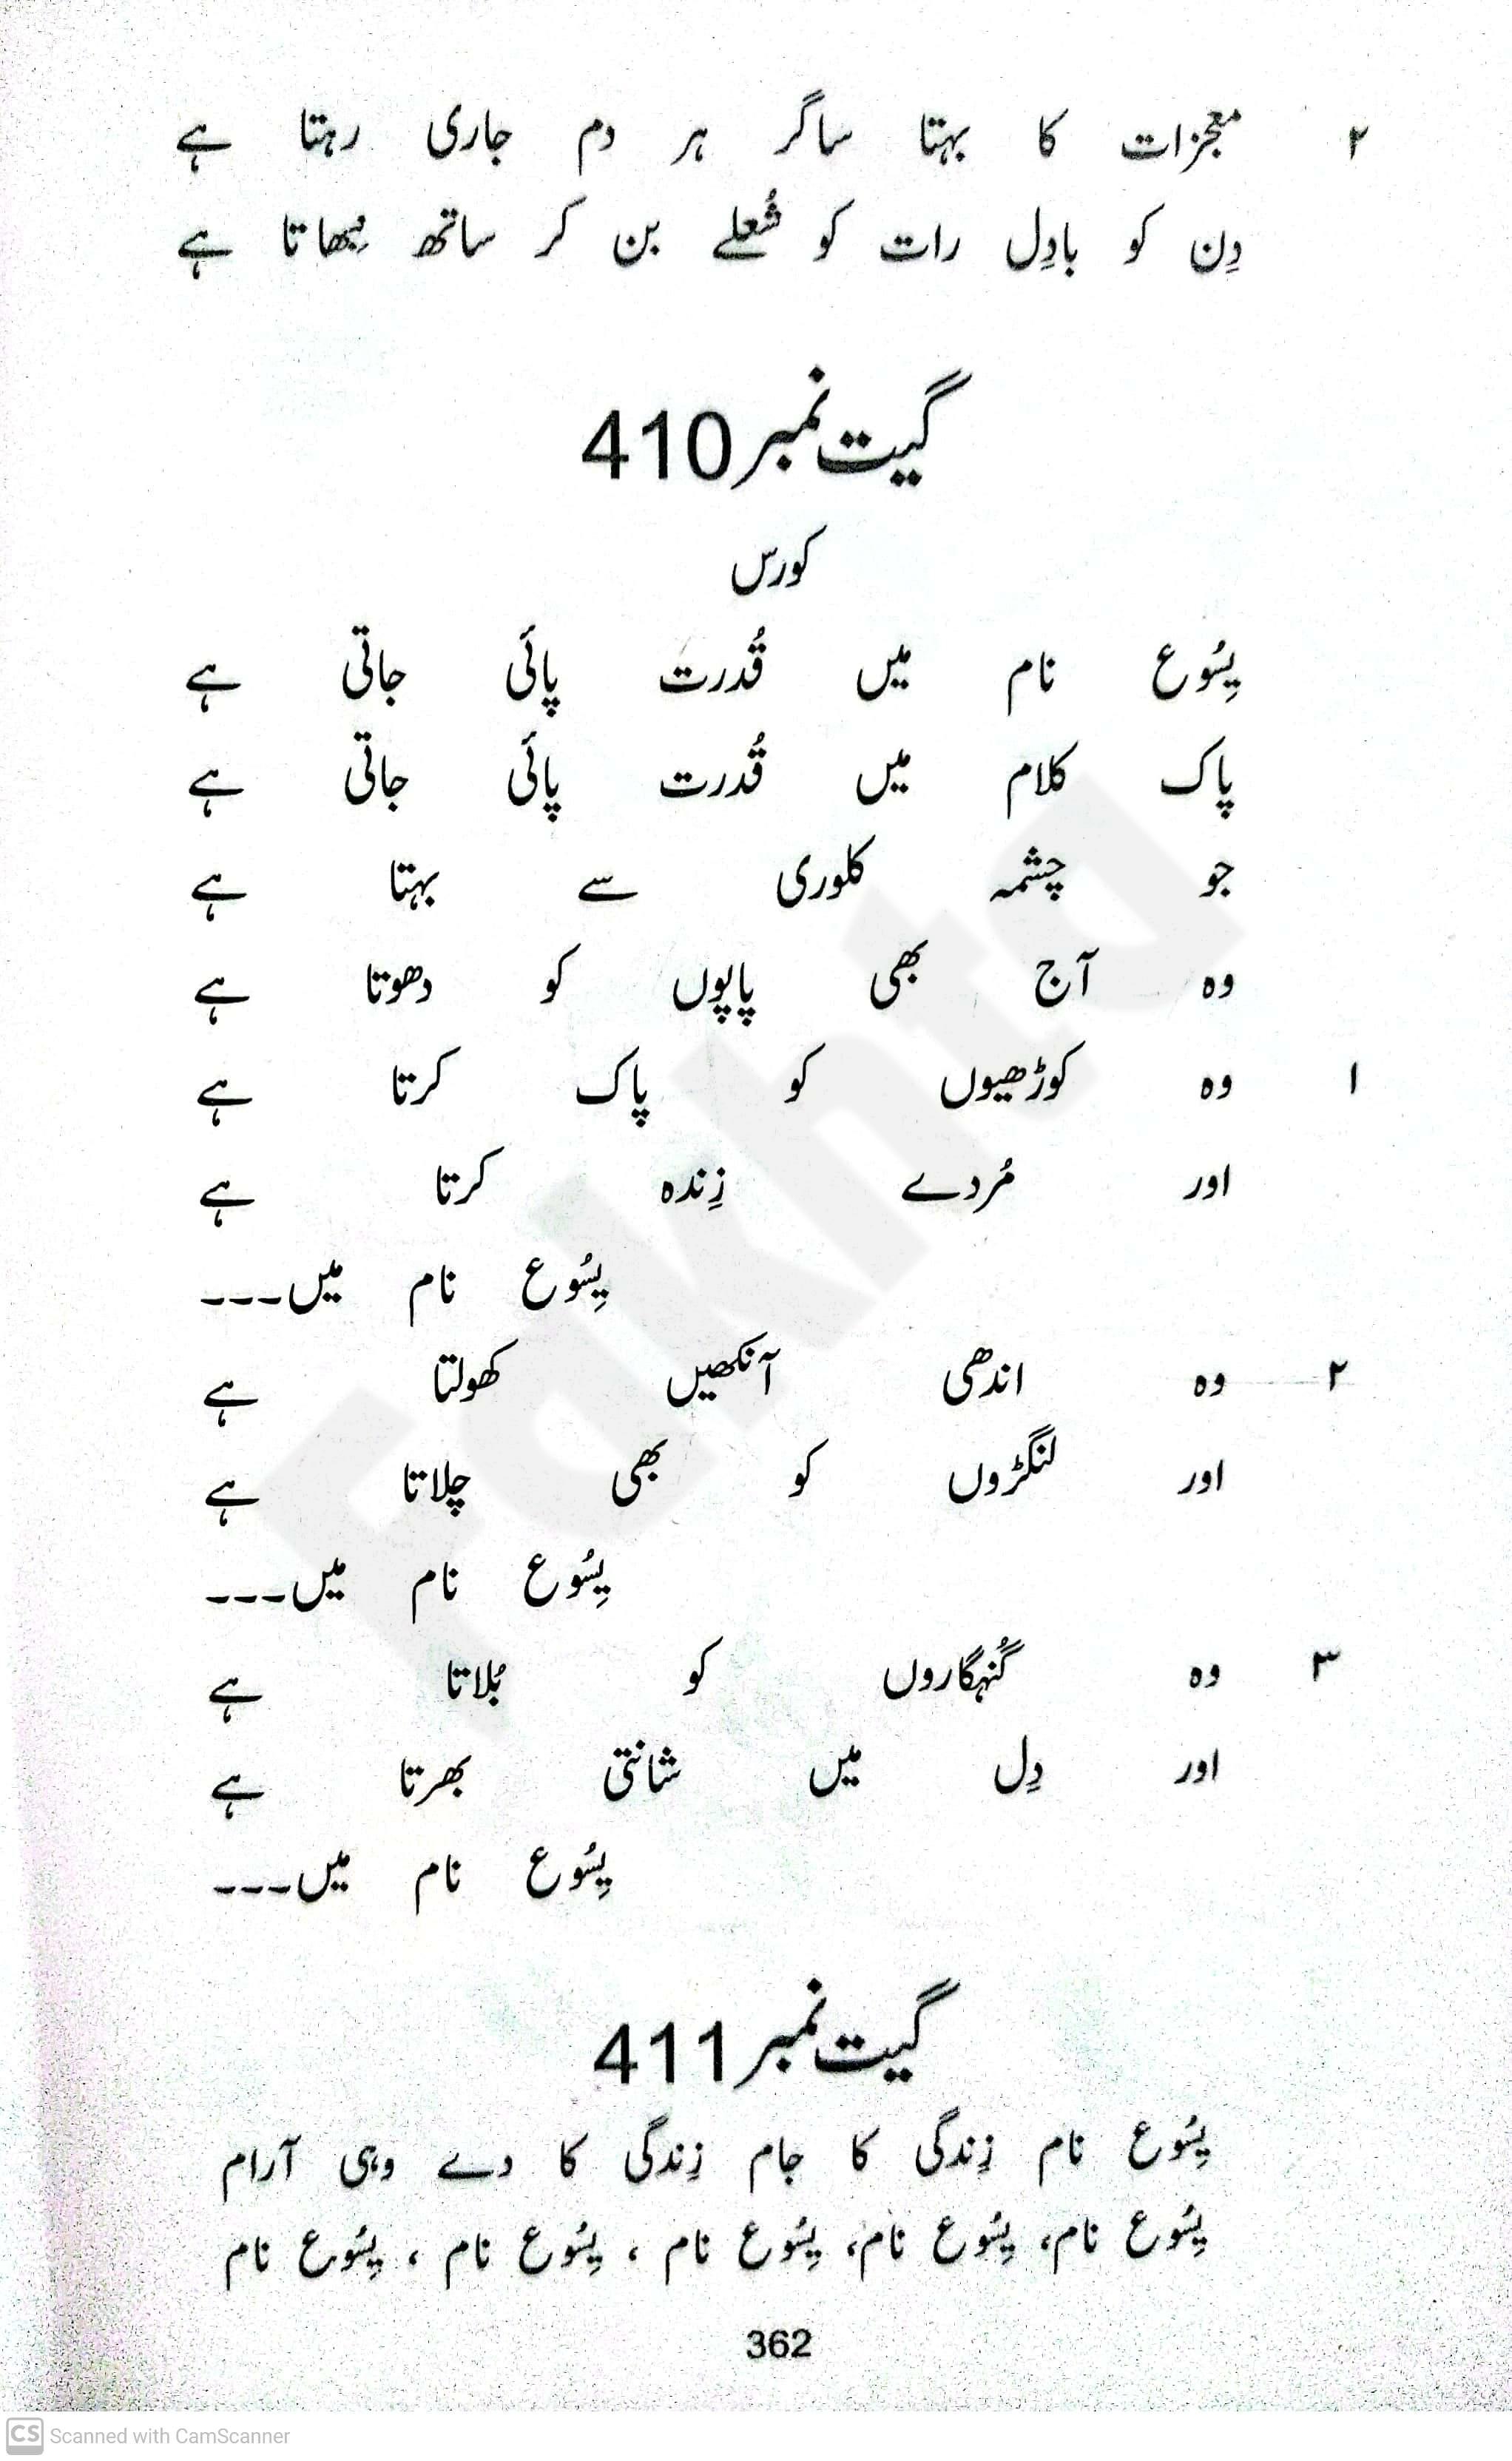 ۲ معجزات کا بہتا ساگر ہر دم جاری رہتا ہے
دِن کو بادِل رات کو شُعلے بن کر ساتھ نِبھاتا ہے
گیت نمبر 410
کورس
یِسُوع نام میں قُدرت پائی جاتی ہے
پاک کلام میں قُدرت پائی جاتی ہے
جو چشمہ کلوری سے بہتا ہے
وہ آج بھی پاپوں کو دھوتا ہے
۱ وہ کوڑھیوں کو پاک کرتا ہے
اور مُردے زِندہ کرتا ہے
یِسُوع نام میں۔۔۔
۲ وہ اندھی آنکھیں کھولتا ہے
اور لنگڑوں کو بھی چلاتا ہے
یِسُوع نام میں۔۔۔
۳ وہ گُنہگاروں کو بُلاتا ہے
اور دِل میں شانتی بھرتا ہے
یِسُوع نام میں۔۔۔
گیت نمبر 411
یِسُوع نام زِندگی کا جام زِندگی کا دے وہی آرام
یِسُوع نام، یِسُوع نام، یِسُوع نام ، یِسُوع نام ، یِسُوع نام
362
Fakhta
CS Scanned with CamScanner